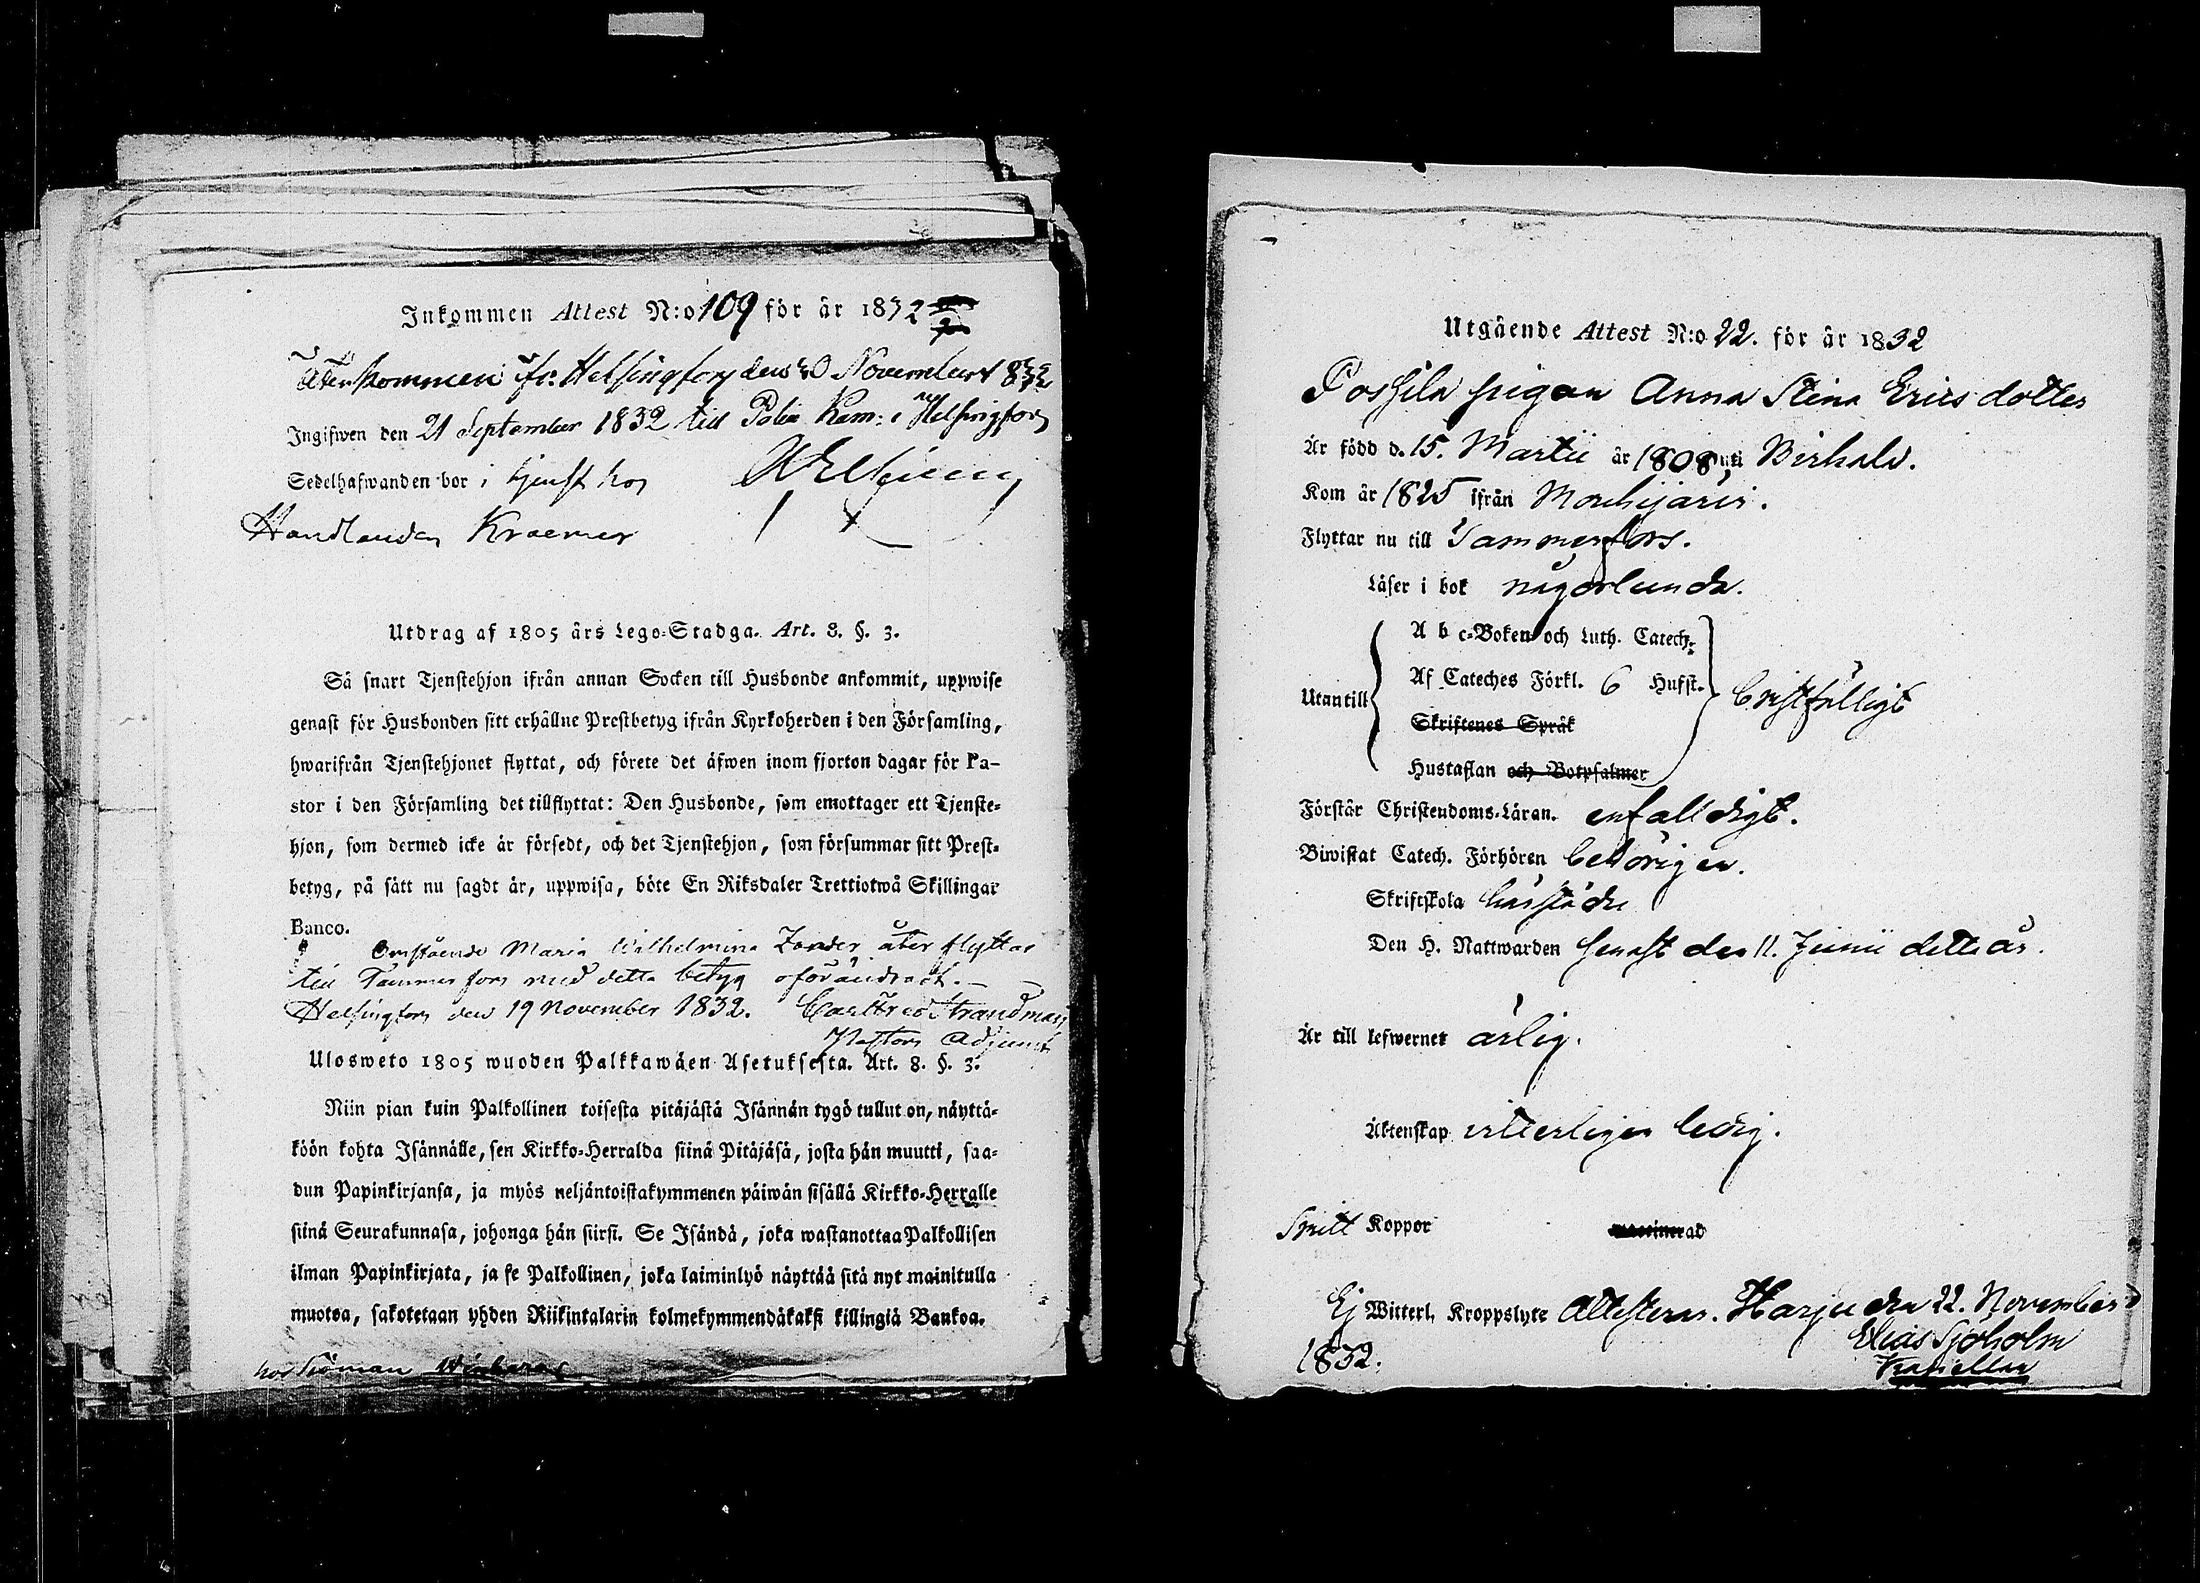 Inkommen Attest N:o 109 för år 1832
Återkommen fr: Helsingfors den 20 November 1832
Ingifwen den 21 September 1832 till Polise Kam: i Helsingfors
Sedelhafwanden bor i tjenst hos
Handlanden Kraemer
Utdrag af 1805 års Lego-Stadga. Art. 8. §. 3.
Så snart Tjenstehjon ifrån annan Socken till Husbonde ankommit, uppwise
genast för Husbonden sitt erhållne Prestbetyg ifrån Kyrkoherden i den Församling,
hwarifrån Tjenstehjonet flyttat, och förete det äfwen inom fjorton dagar för Pa-
stor i den Församling det tillflyttat: Den Husbonde, som emottager ett Tjenste-
hjon, som dermed icke är försedt, och det Tjenstehjon, som försummar sitt Prest-
betyg, på sätt nu sagdt är, uppwisa, böte En Riksdaler Trettiotwå Skillingar
Banco.
Omstående Maria Wilhelmina Zander åter flyttar
till Tammerfors med detta betyg oförändradt.
Helsingfors den 19 November 1832. Carl Fred Strandman
Pastors Adjunct
Ulosweto 1805 wuoden Palkkawäen Asetuksesta. Art. 8. §. 3.
Niin pian kuin Palkollinen toisesta pitäjästä Isännän tygö tullut on, näyttä-
köön kohta Isännälle, sen Kirkko-Herralda siinä Pitäjäsä, josta hän muutti, saa-
dun Papinkirjansa, ja myös neljäntoistakymmenen päiwän sisällä Kirkko-Herralle
siinä Seurakunnasa, johonga hän siirsi. Se Isändä, joka wastanottaa Palkollisen
ilman Papinkirjata, ja se Palkollinen, joka laiminlyö näyttää sitä nyt mainitulla
muotoa, sakotetaan yhden Riikintalarin kolmekymmendäkaksi killingiä Bankoa.
hos
Utgående Attest N:o 22. för år 1832
Possila pigan Anna Stina Ericsdotter
Är född d. 15. Martii år 1808 uti Birkala.
Kom år 1825 ifrån Mouhijärvi.
Flyttar nu till Tammerfors.
Läser i bok någorlunda.
A b c-Boken och Luth. Catech:
Utantill Af Cateches Förkl. 6 Hufst. bristfälligt
Skriftenes Språk
Hustaflan och Botpsalmer
Förstår Christendoms-Läran. enfalldigt.
Biwistat Catech. Förhören behörigen.
Skriftskola
Den H. Nattwarden senast den 11. Junii detta år.
Är till lefwernet ärlig.
Äktenskap witterligen ledig.
Smitt Koppor vaccinerad
Ej Witterl. Kroppslyte Attesteras. Harju den 22. November
1832. Elias Sjöholm
Kapellan